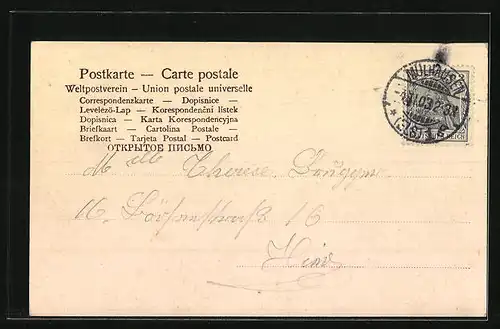 Postkarte — Carte postale
Weltpostverein - Union postale universelle
Correspondenzkarte — Dopisnice —
Levelező-Lap — Korespondenční lístek
Dopisnica — Karta Korespondencyjna
Briefkaart — Cartolina Postale —
Brefkort — Tarjeta Postal — Postcard
ОТКРЫТОЕ ПИСЬМО
MÜLHAUSEN
(ELS)
Melle Therese
16 16